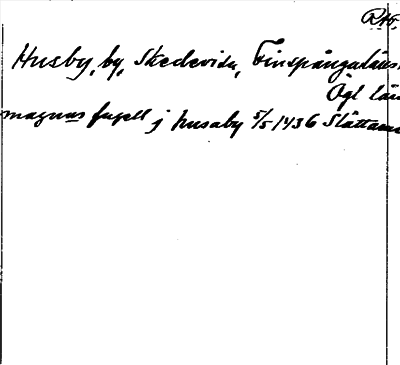 Husby, by, Skedevida, Finspångaläns
Ögl län
magnus fugell j husaby 5/5 1436 Slättam